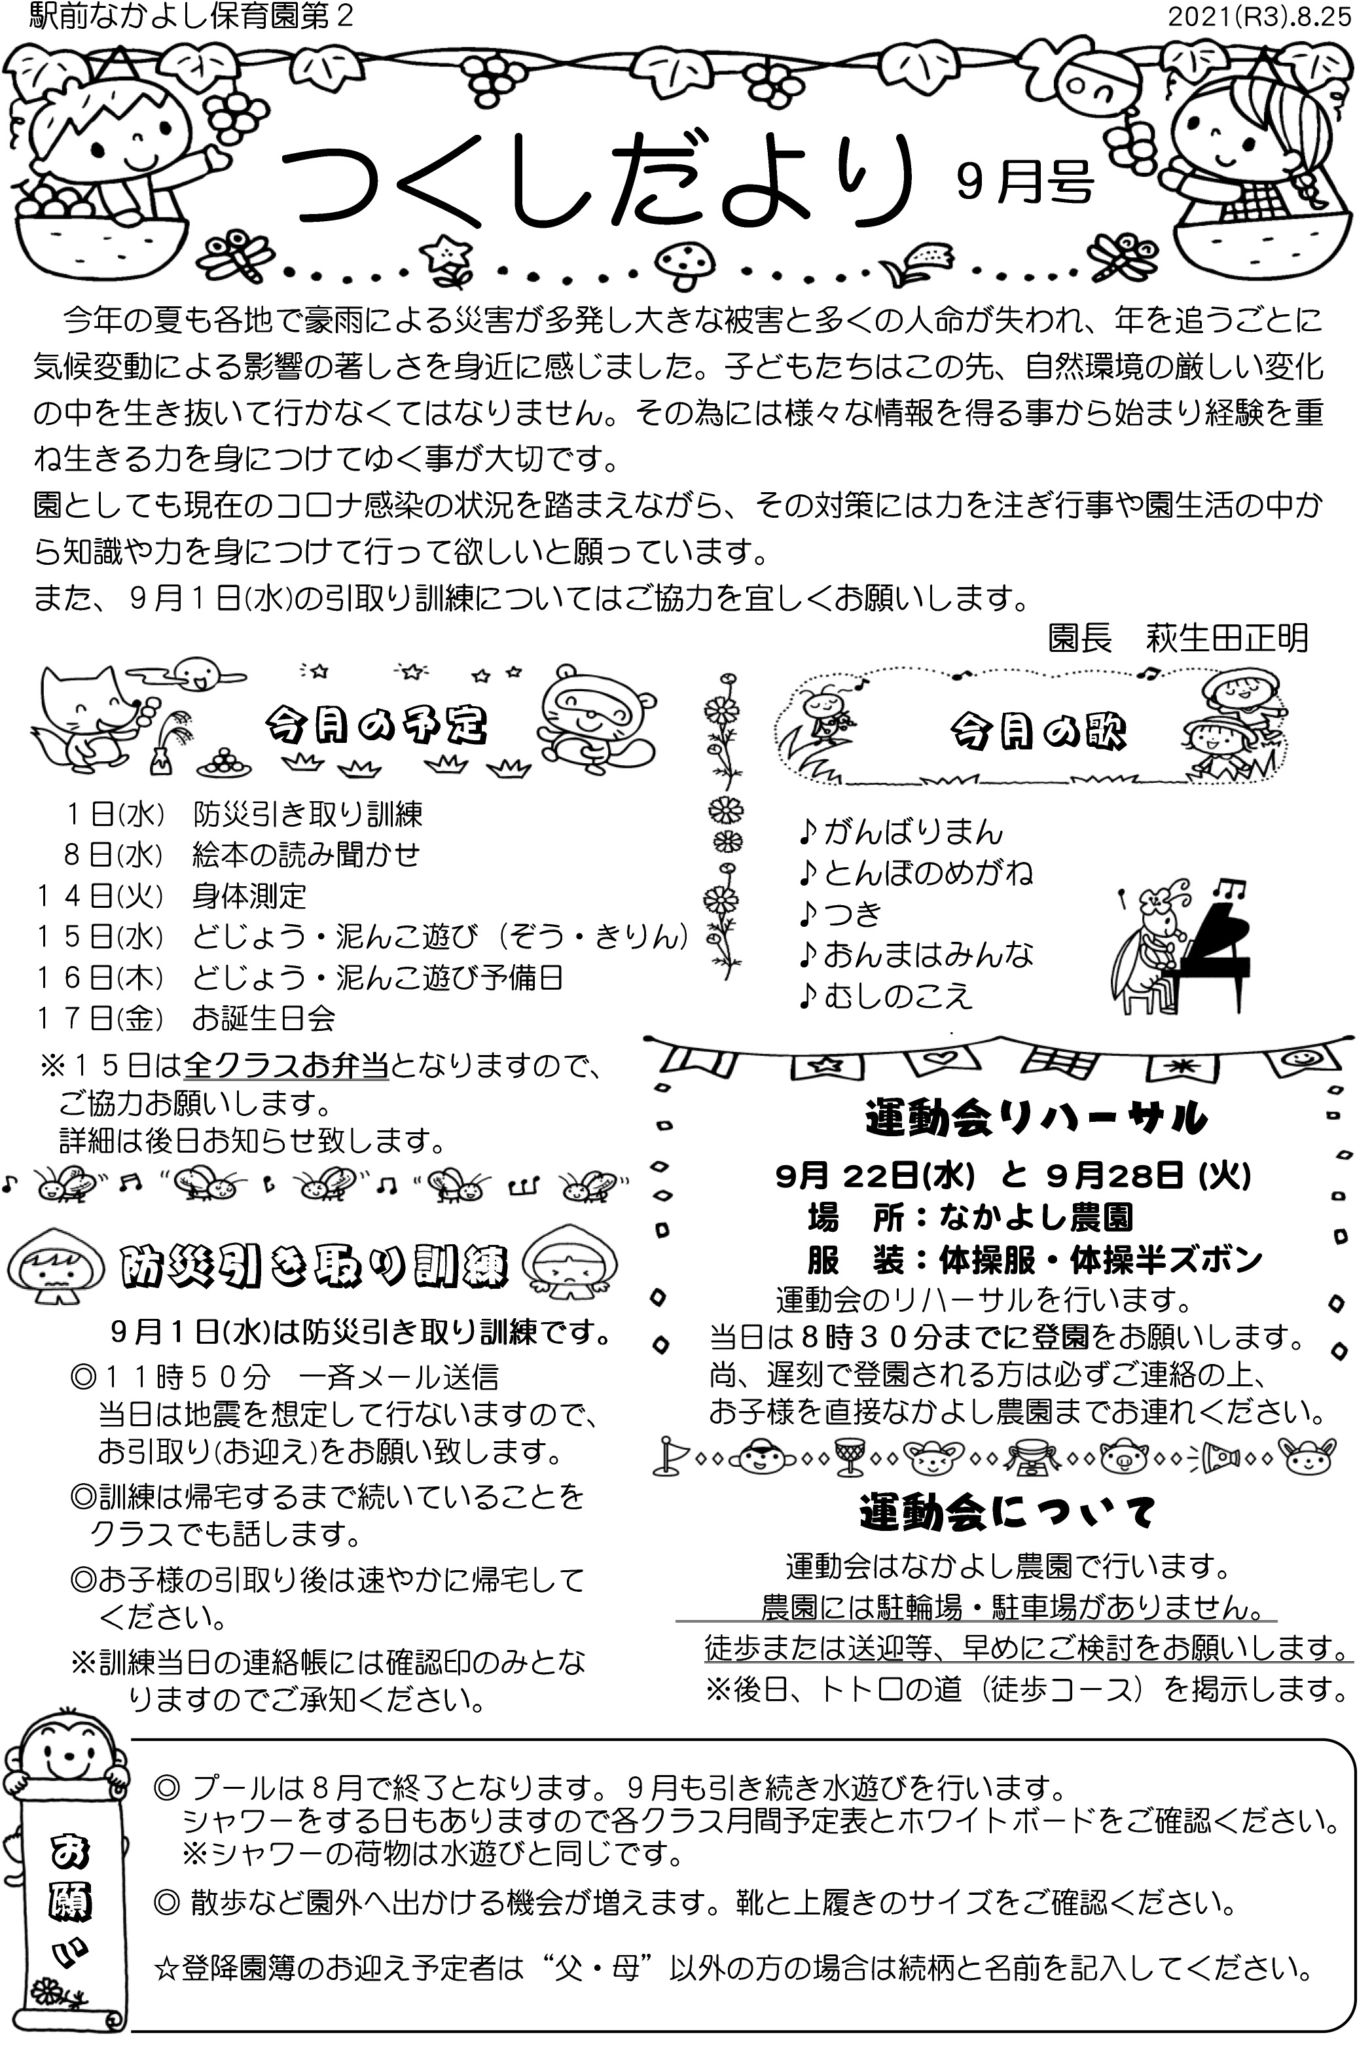 駅前なかよし保育園第２
2021(R3).8.25
つくしだより ９月号
今年の夏も各地で豪雨による災害が多発し大きな被害と多くの人命が失われ、年を追うごとに
気候変動による影響の著しさを身近に感じました。子どもたちはこの先、自然環境の厳しい変化
の中を生き抜いて行かなくてはなりません。その為には様々な情報を得る事から始まり経験を重
ね生きる力を身につけてゆく事が大切です。
園としても現在のコロナ感染の状況を踏まえながら、その対策には力を注ぎ行事や園生活の中か
ら知識や力を身につけて行って欲しいと願っています。
また、９月１日(水)の引取り訓練についてはご協力を宜しくお願いします。
園長　萩生田正明
今月の予定
１日(水)　防災引き取り訓練
８日(水)　絵本の読み聞かせ
１４日(火)　身体測定
１５日(水)　どじょう・泥んこ遊び（ぞう・きりん）
１６日(木)　どじょう・泥んこ遊び予備日
１７日(金)　お誕生日会
※１５日は全クラスお弁当となりますので、
ご協力お願いします。
詳細は後日お知らせ致します。
今月の歌
♪がんばりまん
♪とんぼのめがね
♪つき
♪おんまはみんな
♪むしのこえ
防災引き取り訓練
９月１日(水)は防災引き取り訓練です。
◎１１時５０分　一斉メール送信
当日は地震を想定して行ないますので、
お引取り(お迎え)をお願い致します。
◎訓練は帰宅するまで続いていることを
クラスでも話します。
◎お子様の引取り後は速やかに帰宅して
ください。
※訓練当日の連絡帳には確認印のみとな
りますのでご承知ください。
運動会リハーサル
9月 22日(水)　と ９月28日 (火)
場　所：なかよし農園
服　装：体操服・体操半ズボン
運動会のリハーサルを行います。
当日は８時３０分までに登園をお願いします。
尚、遅刻で登園される方は必ずご連絡の上、
お子様を直接なかよし農園までお連れください。
運動会について
運動会はなかよし農園で行います。
農園には駐輪場・駐車場がありません。
徒歩または送迎等、早めにご検討をお願いします。
※後日、トトロの道（徒歩コース）を掲示します。
お願い
◎ プールは８月で終了となります。９月も引き続き水遊びを行います。
シャワーをする日もありますので各クラス月間予定表とホワイトボードをご確認ください。
※シャワーの荷物は水遊びと同じです。
◎ 散歩など園外へ出かける機会が増えます。靴と上履きのサイズをご確認ください。
☆登降園簿のお迎え予定者は“父・母”以外の方の場合は続柄と名前を記入してください。